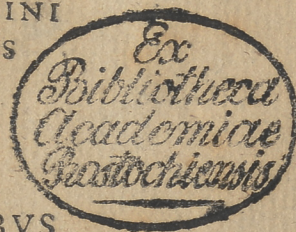 INI
S
Ex
Bibliotheca
Academiae
Rostochiensis
BVS